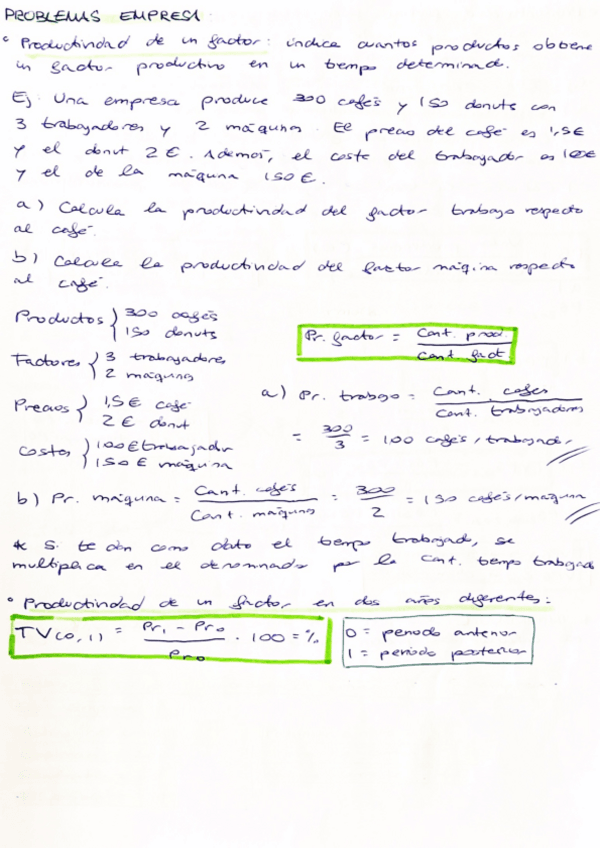 PROBLEMAS EMPRESA:
° Productividad de un factor: indica cuantos productos obtiene
un factor productivo en un tiempo determinado.
Ej: Una empresa produce 300 cafés y 150 donuts con
3 trabajadores y 2 máquinas. El precio del café es 1,5€
y el donut 2€. Además, el coste del trabajador es 100€
y el de la máquina 150€.
a) Calcula la productividad del factor trabajo respecto
al café.
b) Calcula la productividad del factor máquina respecto
al café.
Productos } 300 cafés
150 donuts
Pr. factor = Cant. prod. / Cant. fact.
Factores } 3 trabajadores
2 máquinas
Precios } 1,5€ café
2€ donut
a) Pr. trabajo = Cant. cafés / Cant. trabajadores
= 300/3 = 100 cafés/trabajador
Costes } 100€ trabajador
150€ máquina
b) Pr. máquina = Cant. cafés / Cant. máquinas = 300/2 = 150 cafés/máquina
* Si te dan como dato el tiempo trabajado, se
multiplica en el denominador por la cant. tiempo trabajado
° Productividad de un factor en dos años diferentes:
TV(0,1) = Pr1 - Pr0 / Pr0 · 100 = %
0 = periodo anterior
1 = periodo posterior